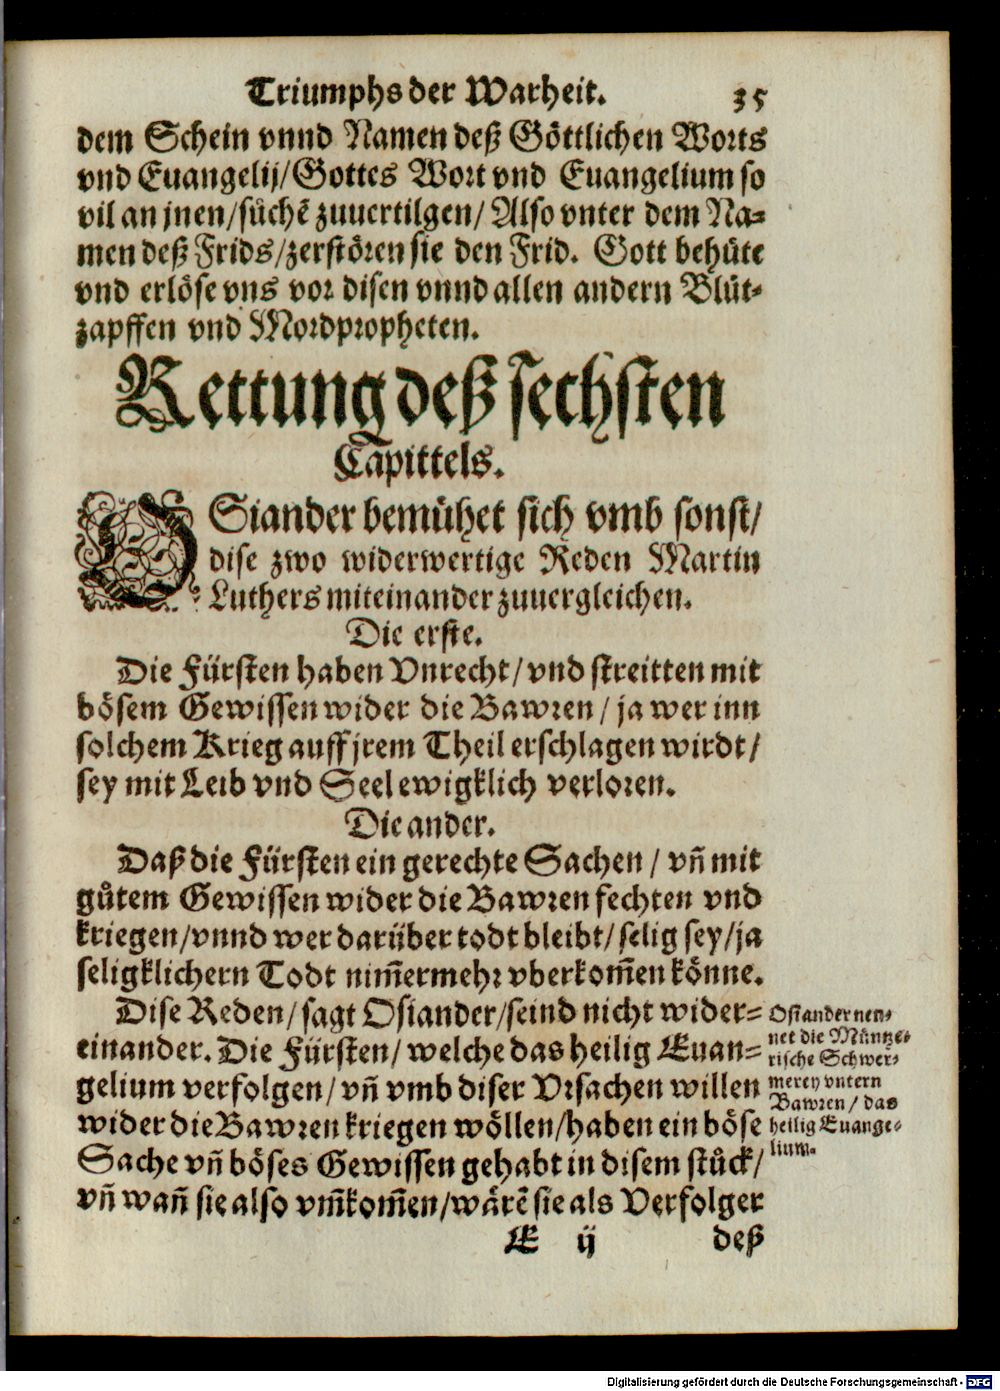 Triumphs der Warheit. 35
dem Schein vnnd Namen deß Göttlichen Worts
vnd Euangelij/Gottes Wort vnd Euangelium so
vil an jnen/sůchē zuuertilgen/ Also vnter dem Na-
men deß Frids/zerstören sie den Frid. Gott behüte
vnd erlöse vns vor disen vnnd allen andern Blůt-
zapffen vnd Mordpropheten.
Rettung deß sechsten
Capittels.
OSiander bemühet sich vmb sonst/
dise zwo widerwertige Reden Martin
Luthers miteinander zuuergleichen.
Die erste.
Die Fürsten haben Vnrecht/ vnd streitten mit
bösem Gewissen wider die Bawren/ ja wer inn
solchem Krieg auff jrem Theil erschlagen wirdt/
sey mit Leib vnd Seel ewigklich verloren.
Die ander.
Daß die Fürsten ein gerechte Sachen/ vñ mit
gůtem Gewissen wider die Bawren fechten vnd
kriegen/vnnd wer darüber todt bleibt/ selig sey/ja
seligklichern Todt nim̄ermehr vberkom̄en könne.
Dise Reden/ sagt Osiander/seind nicht wider-
einander. Die Fürsten/ welche das heilig Euan-
gelium verfolgen/ vñ vmb diser Vrsachen willen
wider die Bawren kriegen wöllen/haben ein böse
Sache vñ böses Gewissen gehabt in disem stůck/
vñ wañ sie also vm̄kom̄en/wärē sie als Verfolger
Osiander nen-
net die Müntze-
rische Schwer-
merey vntern
Bawren/ das
heilig Euange-
lium.
E ij deß
Digitalisierung gefördert durch die Deutsche Forschungsgemeinschaft - DFG